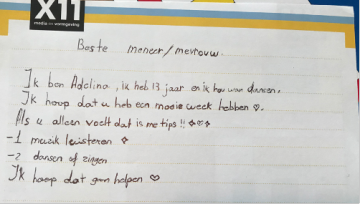 X11
media en vormgeving
Beste meneer/mevrouw.
Ik ben Adelina, ik heb 13 jaar en ik hou van dansen.
Ik hoop dat u heb een mooie week hebben ♡.
Als u alleen voelt dat is me tips!!
-1 muziek leisteren
-2 dansen of zingen
Ik hoop dat gaan helpen ♡